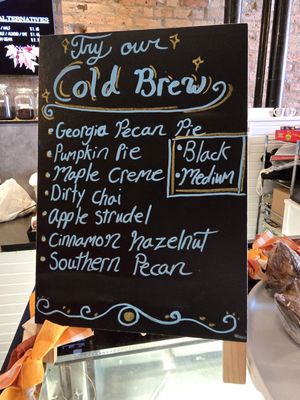 ALTERNATIVES
Try our
Cold Brew
• Georgia Pecan Pie
• Pumpkin Pie
• Maple Creme
• Dirty Chai
• Apple Strudel
• Cinnamon Hazelnut
• Southern Pecan
• Black
• Medium